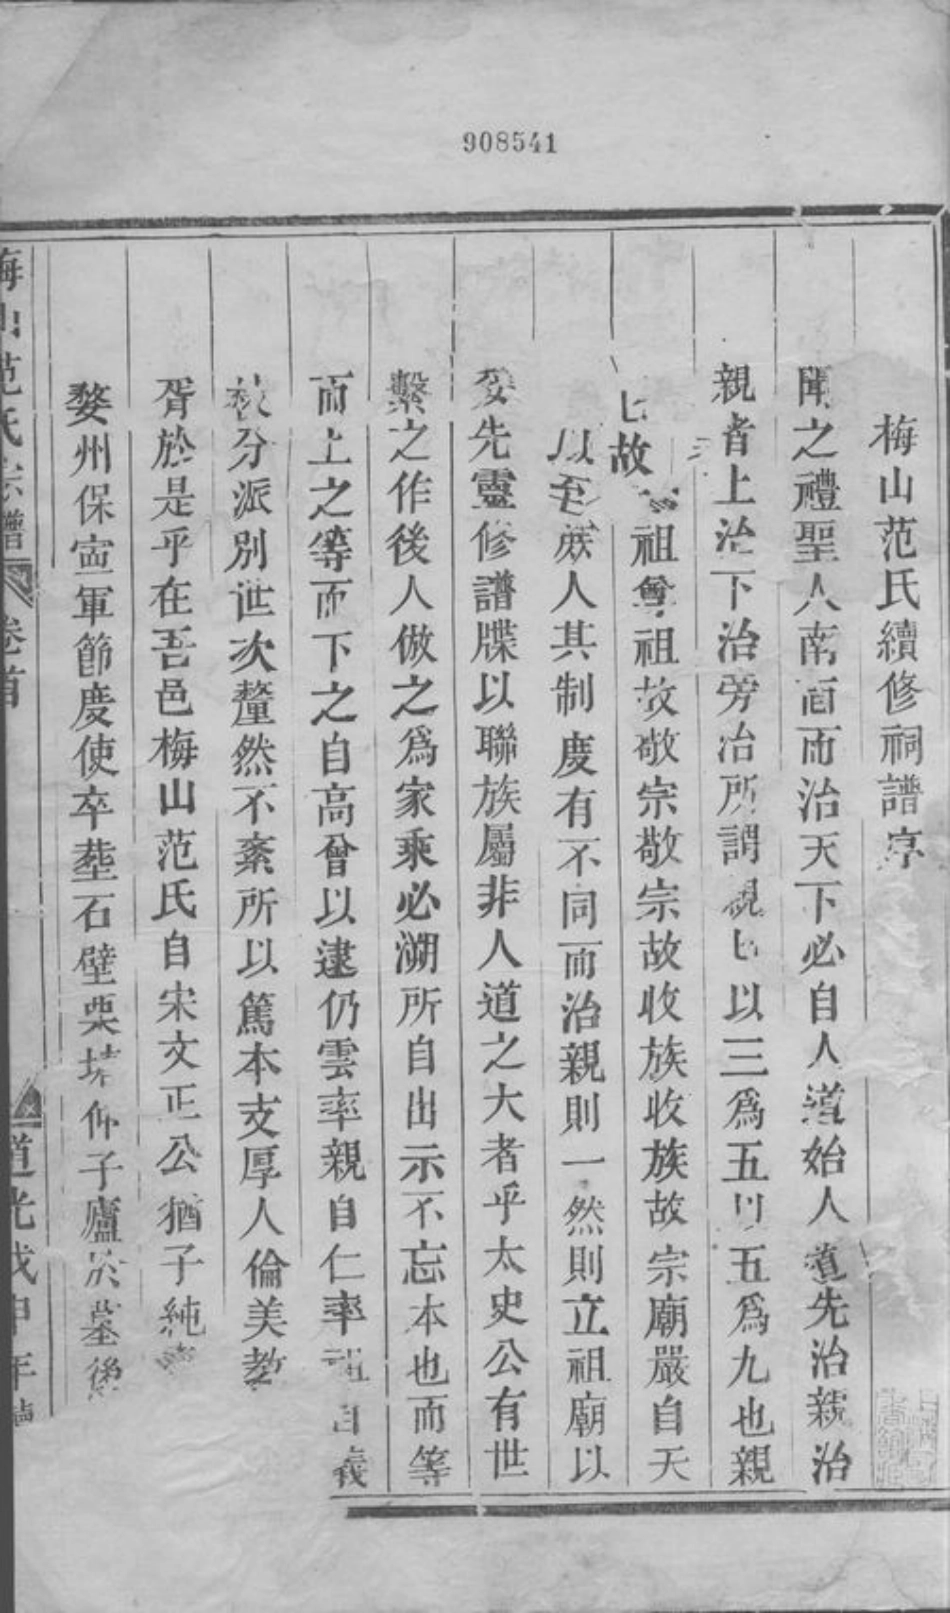 908541
梅山范氏續修祠譜序
聞之禮聖人南面而治天下必自人道始人道先治親治
親者上治下治旁治所謂親親以三爲五以五爲九也親
故祖尊祖故敬宗敬宗故收族收族故宗廟嚴自天
以至族人其制度有不同而治親則一然則立祖廟以
妥先靈修譜牒以聯族屬非人道之大者乎太史公有世
繫之作後人倣之爲家乘必溯所自出示不忘本也而等
而上之等而下之自高曾以逮仍雲率親自仁率祖自義
枝分派別世次釐然不紊所以篤本支厚人倫美教
胥於是乎在吾邑梅山范氏自宋文正公猶子純
婺州保寍軍節度使卒塟石壁栗塘仲子廬於墓後
梅山范氏宗譜 卷首 道光戊申年